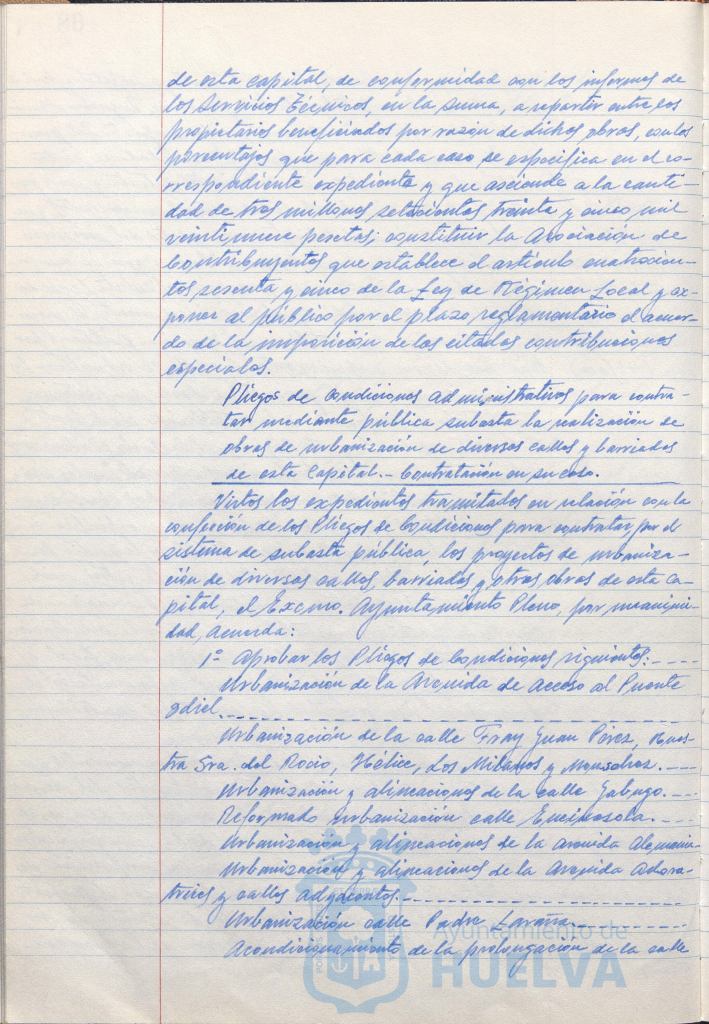 de esta capital, de conformidad con los informes de
los Servicios Técnicos, en la suma, a repartir entre los
propietarios beneficiados por razón de dichas obras, con los
porcentajes que para cada caso se especifica en el co-
rrespondiente expediente y que asciende a la canti-
dad de tres millones setecientas treinta y cinco mil
veintinueve pesetas; constituir la Asociación de
Contribuyentes que establece el artículo cuatrocien-
tos sesenta y cinco de la Ley de Régimen Local y ex-
poner al público por el plazo reglamentario el acuer-
do de la imposición de las citadas contribuciones
especiales.
Pliegos de condiciones administrativas para contra-
tar mediante pública subasta la realización de
obras de urbanización de diversas calles y barriadas
de esta Capital.- Contratación en su caso.
Vistos los expedientes tramitados en relación con la
confección de los Pliegos de Condiciones para contratar, por el
sistema de subasta pública, los proyectos de urbaniza-
ción de diversas calles, barriadas y otras obras de esta Ca-
pital, el Excmo. Ayuntamiento Pleno, por unanimi-
dad, acuerda:
1º Aprobar los Pliegos de Condiciones siguientes:----
Urbanización de la Avenida de acceso al Puente
Odiel.
Urbanización de la calle Fray Juan Pérez, Nues-
tra Sra. del Rocío, Hélice, Los Milanos y .----
Urbanización y alineaciones de la calle Jabugo.---
Reformado urbanización calle Encinasola.----
Urbanización y alineaciones de la avenida Alemania.
Urbanización y alineaciones de la Avenida Adora-
trices y calles adyacentes.
Urbanización calle Padre Laraña.
Acondicionamiento de la prolongación de la calle
Ayuntamiento de
HUELVA